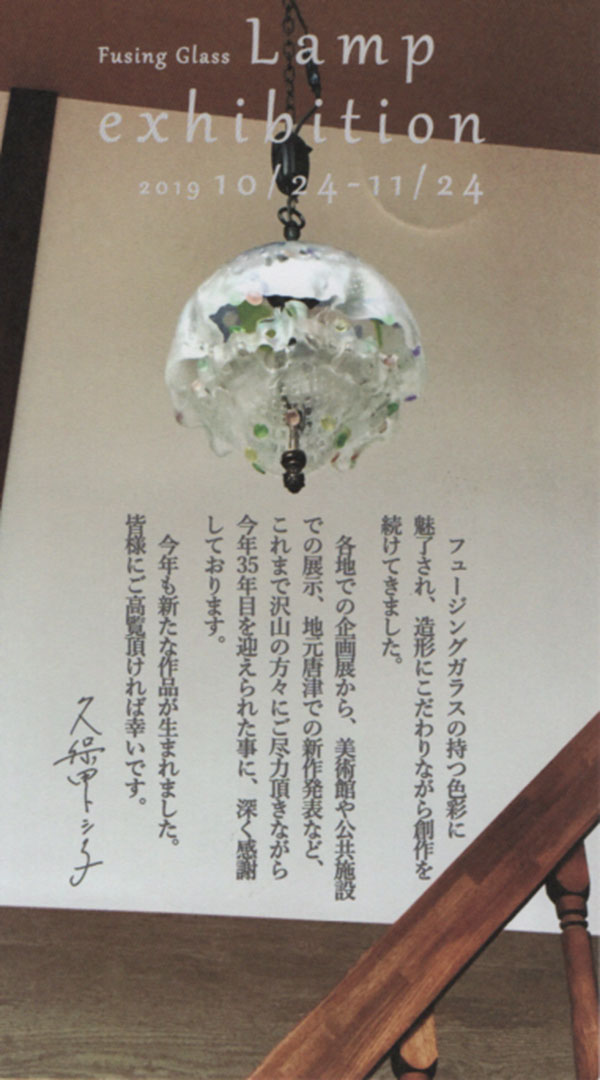 Fusing Glass Lamp
exhibition
2019 10/24-11/24
フュージングガラスの持つ色彩に
魅了され、造形にこだわりながら創作を
続けてきました。
各地での企画展から、美術館や公共施設
での展示、地元唐津での新作発表など、
これまで沢山の方々にご尽力頂きながら
今年35年目を迎えられた事に、深く感謝
しております。
今年も新たな作品が生まれました。
皆様にご高覧頂ければ幸いです。